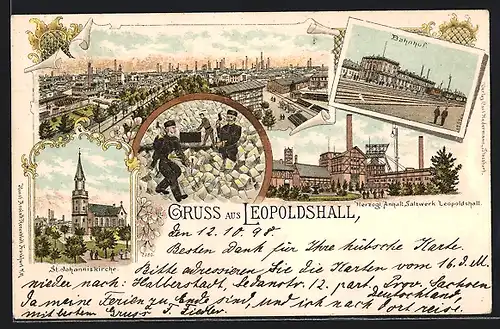 Bahnhof.
St. Johanniskirche.
Herzogl. Anhalt. Salzwerk Leopoldshall.
GRUSS AUS LEOPOLDSHALL,
den 12.10.98.
Besten Dank für Ihre hübsche Karte.
Bitte adressieren Sie die Karten vom 16. d. M.
wieder nach: Halberstadt, Sedanstr. 12. part. Prov. Sachsen
Deutschland,
Da meine Ferien zu Ende sind, und ich nach dort reise.
mit bestem Gruss F.